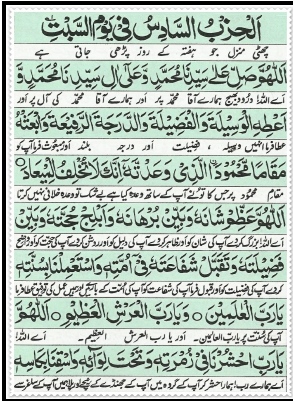 اَلْحِزْبُ السَّادِسُ فِیْ یَوْمِ السَّبْتِ
چھٹی منزل جو ہفتہ کے روز پڑھی جاتی ہے
اَللّٰهُمَّ صَلِّ عَلٰی سَیِّدِنَا مُحَمَّدٍ وَّعَلٰۤی اٰلِ سَیِّدِنَا مُحَمَّدٍ وَّ
اے اللہ! درود بھیج ہمارے آقا محمد پر اور ہمارے آقا محمد کی آل پر اور
اَعْطِهِ الْوَسِیْلَةَ وَالْفَضِیْلَةَ وَالدَّرَجَةَ الرَّفِیْعَةَ وَابْعَثْهُ
عطا فرما انہیں وسیلہ، فضیلت اور درجہ بلند اور مبعوث فرما آپ کو
مَقَامًا مَّحْمُوْدَ الَّذِیْ وَعَدْتَّهٗ اِنَّكَ لَا تُخْلِفُ الْمِیْعَادَ
مقام محمود پر جس کا تو نے آپ کے ساتھ وعدہ کیا ہے بے شک تو وعدہ خلافی نہیں کرتا
اَللّٰهُمَّ عَظِّمْ شَانَهٗ وَبَیِّنْ بُرْهَانَهٗ وَاَبْلِجْ حُجَّتَهٗ وَبَیِّنْ
اے اللہ! بزرگ کر دے آپ کی شان کو اور ظاہر کر دے آپ کی دلیل کو اور روشن کر دے آپ کی حجت کو اور
فَضِیْلَتَهٗ وَتَقَبَّلْ شَفَاعَتَهٗ فِیْۤ اُمَّتِهٖ وَاسْتَعْمِلْنَا بِسُنَّتِهٖ
کر دے آپ کی فضیلت کو اور قبول فرما آپ کی شفاعت کو آپ کی امت کے
یَا رَبَّ الْعٰلَمِیْنَ وَیَا رَبَّ الْعَرْشِ الْعَظِیْمِ اَللّٰهُمَّ
آپ کی سنت پر یا رب العالمین۔ اور یا رب العرش العظیم۔ اے اللہ!
یَا رَبِّ احْشُرْنَا فِیْ زُمْرَتِهٖ وَتَحْتَ لِوَآئِهٖ وَاسْقِنَا بِكَاْسِهٖ
اے ہمارے رب! ہمارا حشر کر آپ کے گروہ میں آپ کے جھنڈے کے نیچے اور پلا ہمیں آپ کے ساغر سے